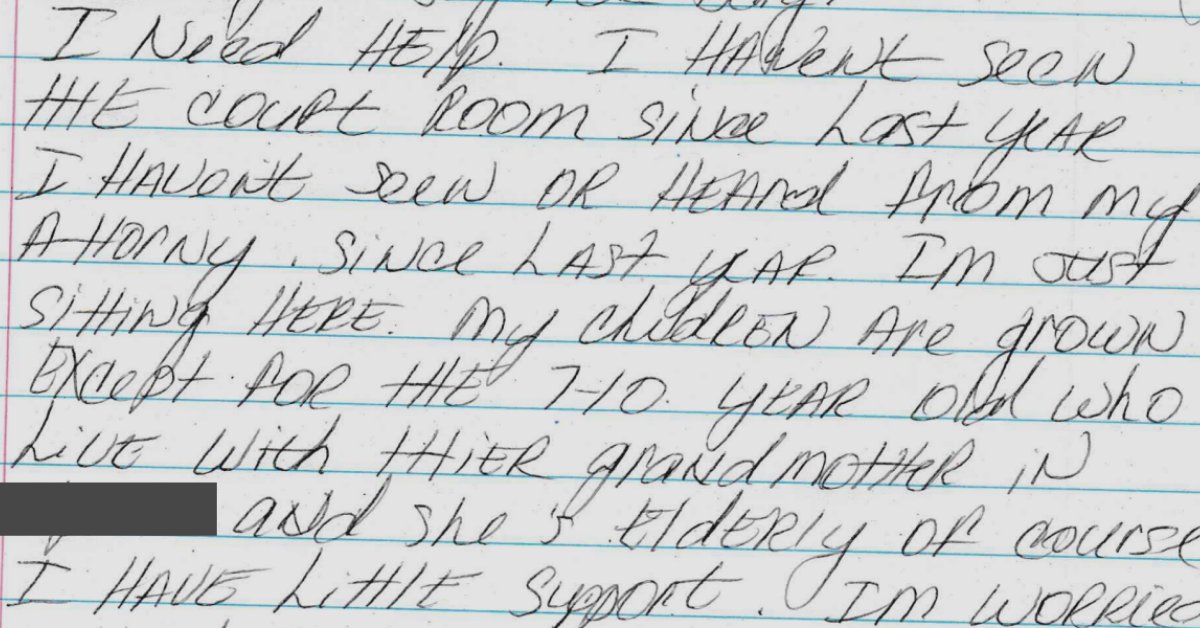 I Need HElp. I HAvent seen
tHE court Room since Last yEAR
I HAvent seen OR HEArd from my
Attorny. since LAst yEAR. Im Just
sitting HERE. my childREN Are grown
Except foR tHE 7-10 yEAR old who
LivE with tHiER grandmotHER iN
and she's ElderLy of course
I HAVE Little Support. Im woRRied